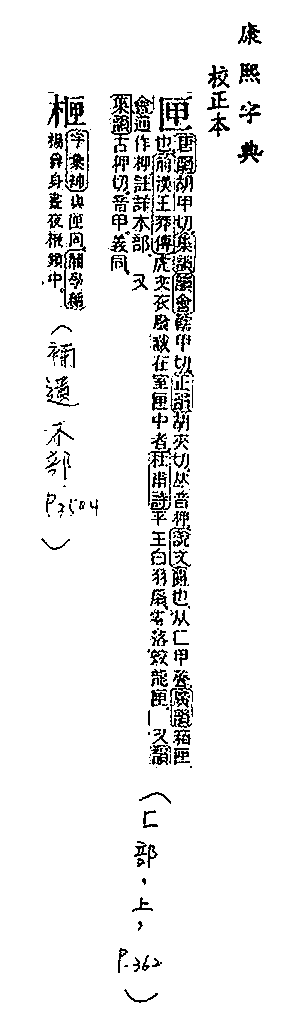 康熙字典
校正本
匣
唐韻胡甲切集韻韻會轄甲切正韻胡夾切𠀤音狎說文匱也从匚甲聲廣韻箱匣
也前漢王莽傳虎文衣廢藏在室匣中者杜甫詩平王白羽扇零落蛟龍匣 又韻
會通作柙註詳木部 又
集韻古狎切音甲義同
(匚部,上,P.362)
柙
字彙補與匣同
楊身晝夜械鎖中
(補遺 木部 P.3504)